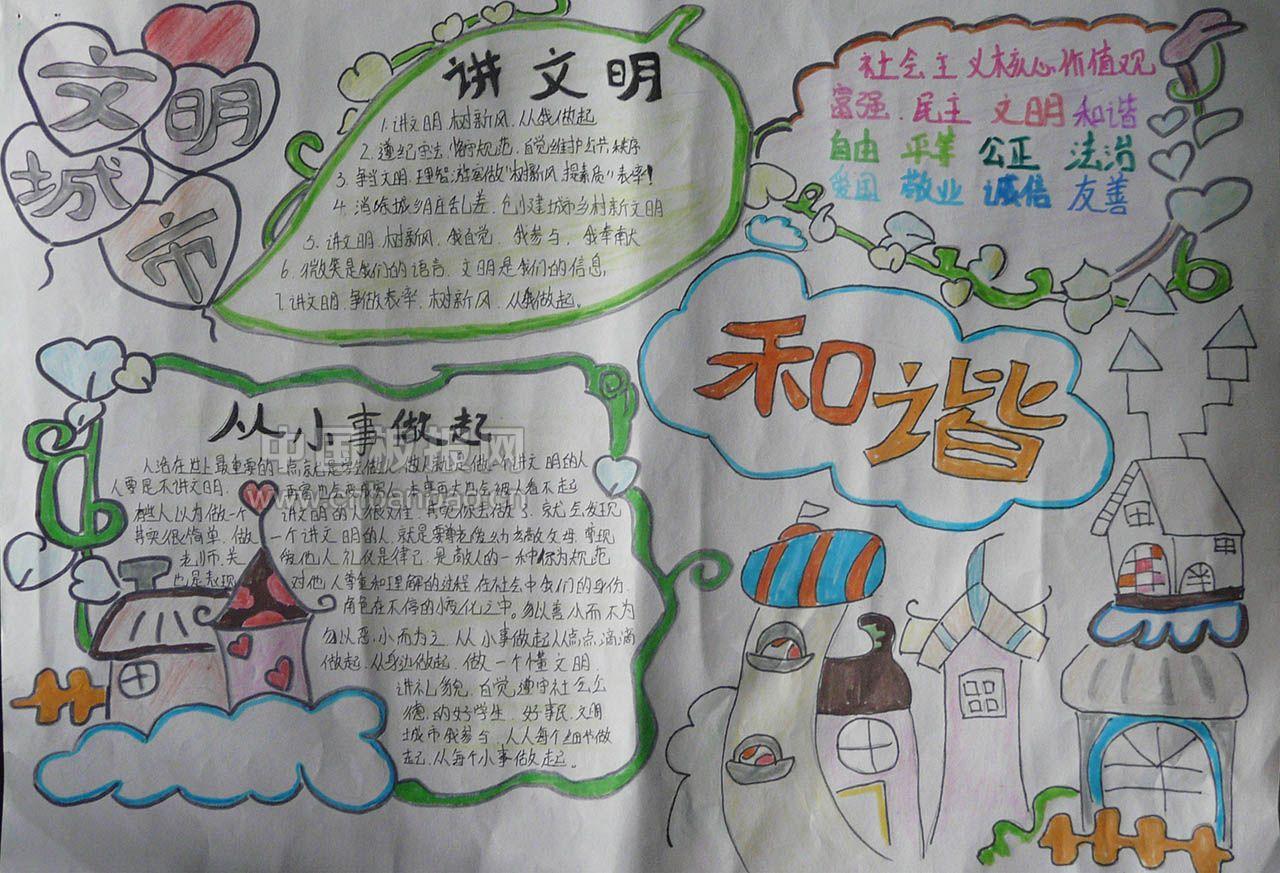 文明
城市
讲文明
1.讲文明.树新风.从我做起
2.遵纪守法.恪守规范.自觉维护公共秩序
3.争当文明.理智游客做"树新风.提素质"表率!
4.消除城乡脏乱差.创建城市乡村新文明
5.讲文明.树新风.我自觉.我参与.我奉献
6.微笑是我们的语言.文明是我们的信息,
7.讲文明.争做表率.树新风.从我做起。
社会主义核心价值观
富强.民主 文明 和谐
自由 平等 公正 法治
爱国 敬业 诚信 友善
和谐
从小事做起
中国板报网
人活在世上最重要的一点就是学做人.做人就是做一个讲文明的人
人要是不讲文明.
有些人以为做一个 讲文明的人很难.其实你去做了.就会发现
其实很简单.做 一个讲文明的人.就是要
老师.关 爱他人.礼仪是律己.是敬人的一种行为规范
也是表现 对他人尊重和理解的过程.在社会中我们的身份.
角色在不停的变化之中.勿以善小而不为
勿以恶.小而为之.从小事做起从点点.滴滴
做起.从身边做起.做一个懂文明.
讲礼貌.自觉遵守社会公
德.的好学生.好事民.文明
城市我参与.人人每个细节做
起.从每个小事做起。